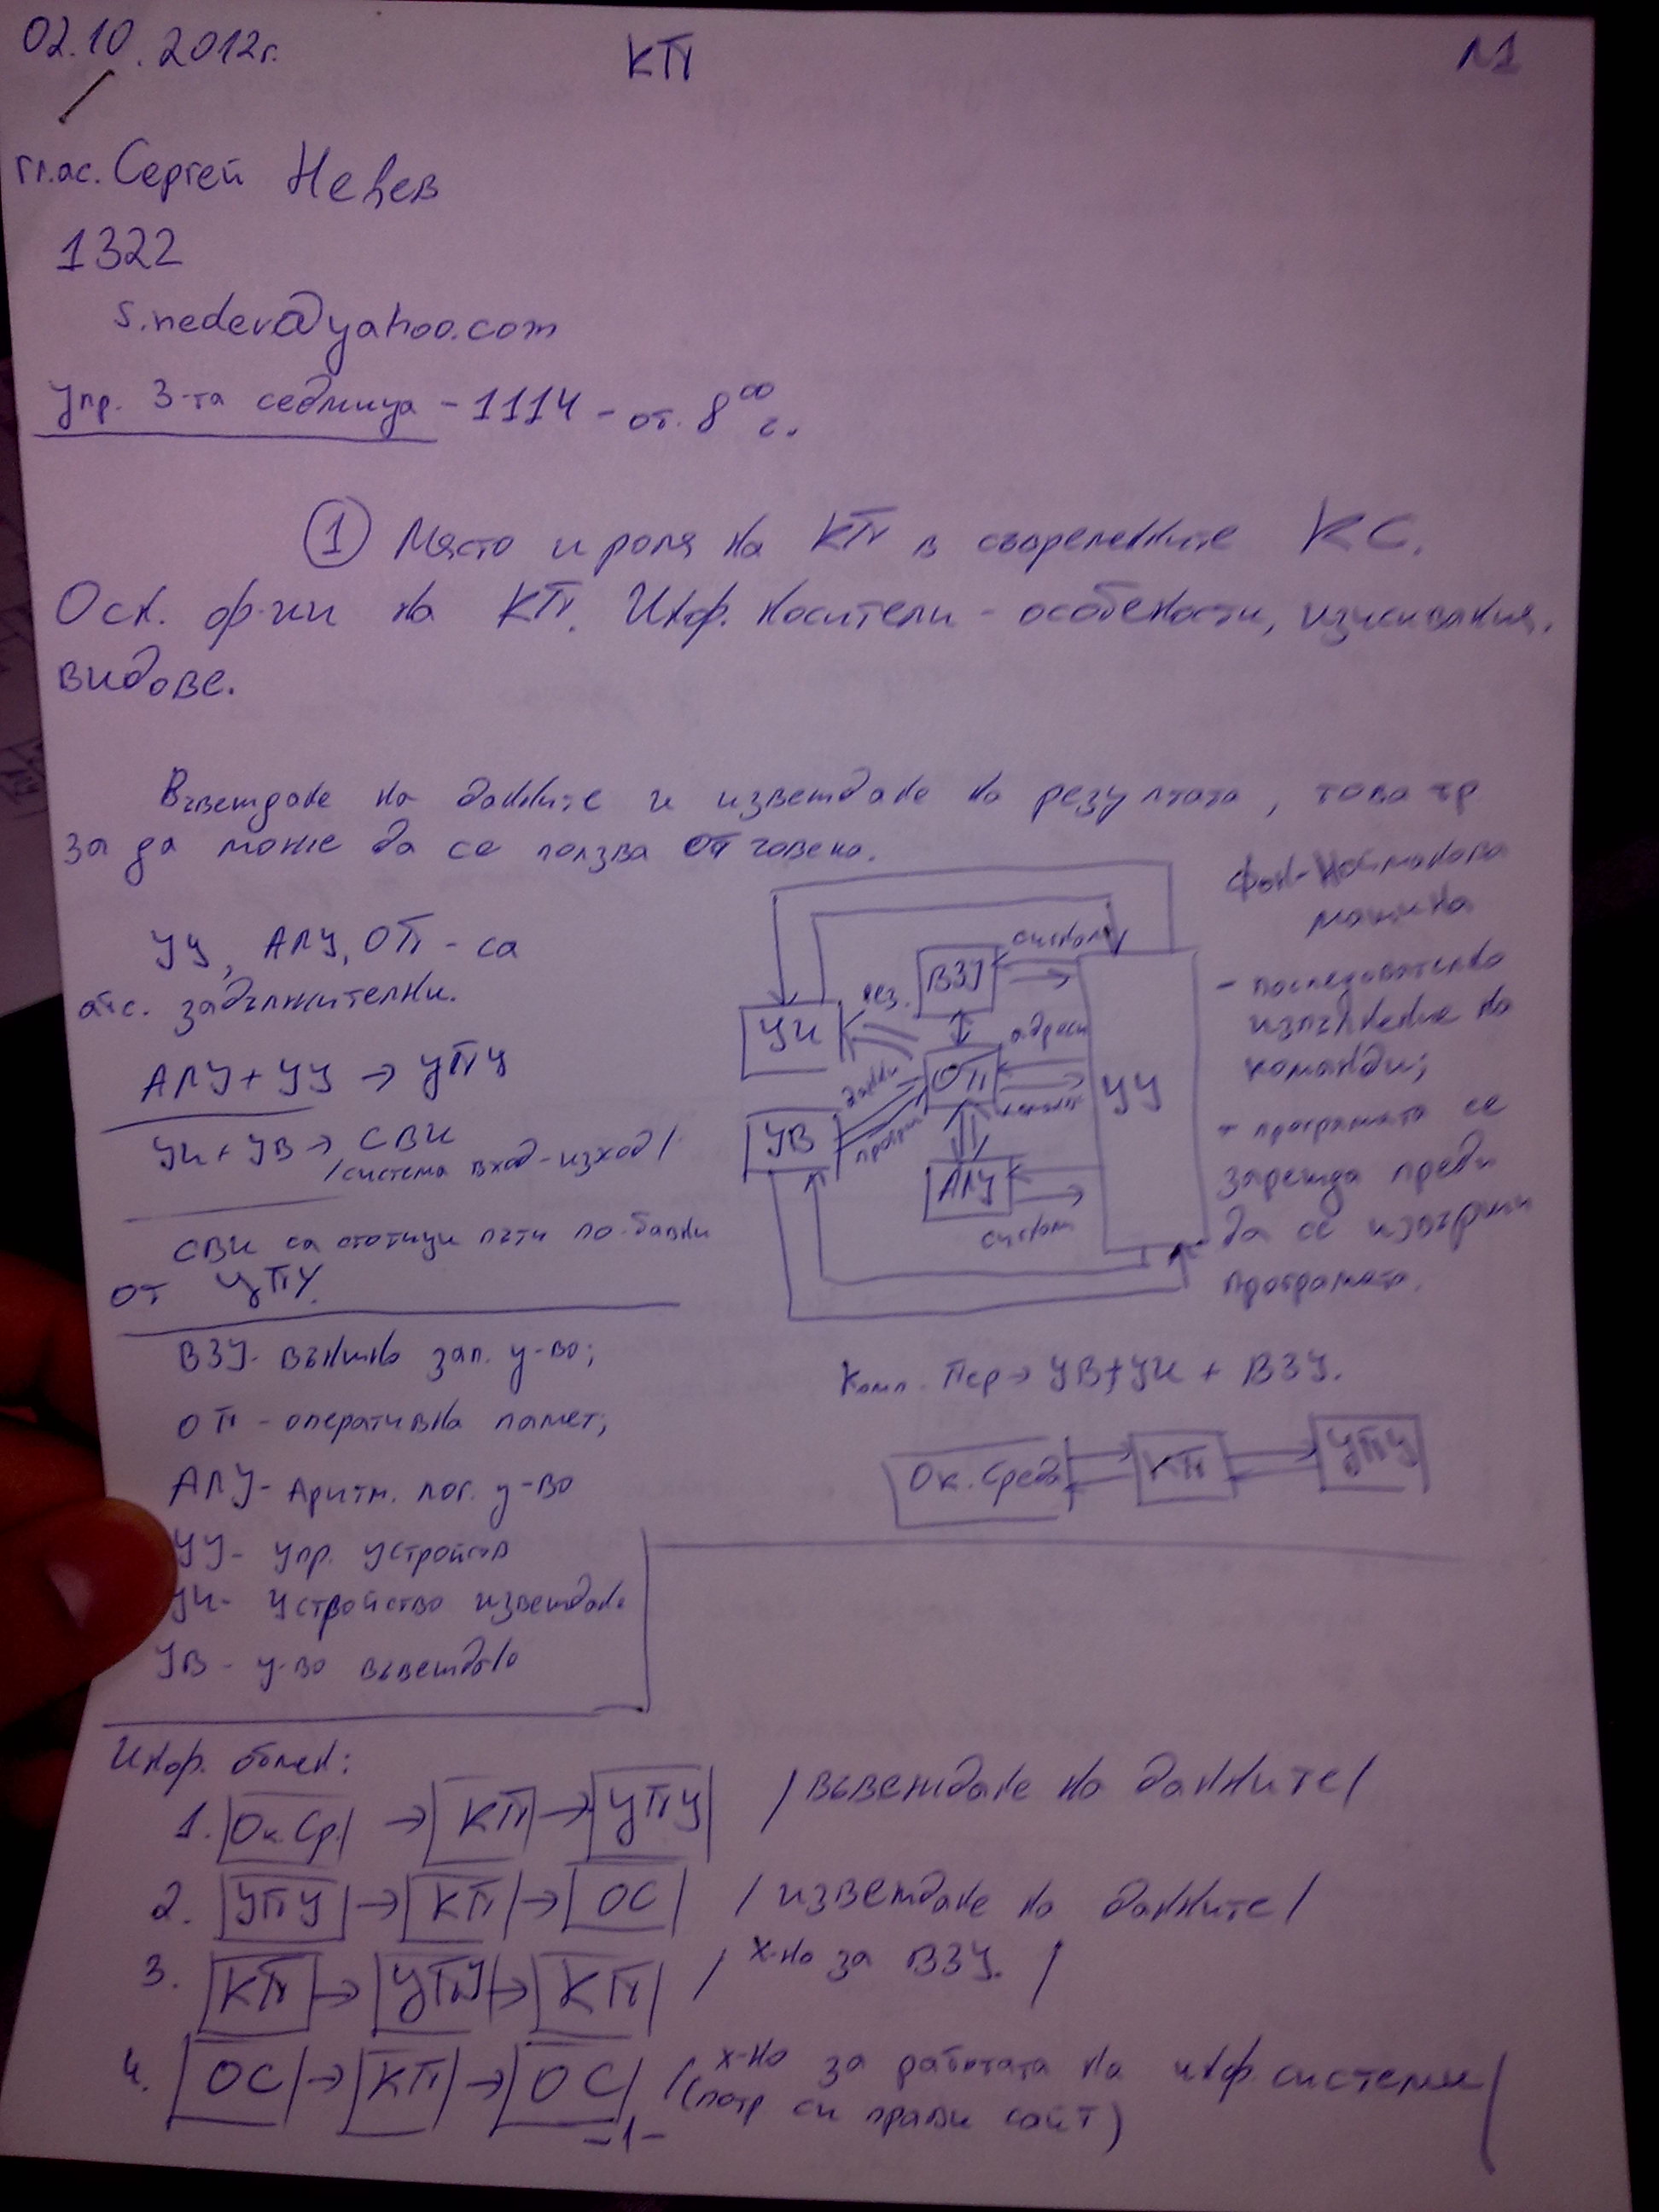 02.10.2012г.
КП
Л1
гл.ас. Сергей Недев
1322
s.nedev@yahoo.com
Упр. 3-та седмица - 1114 - от 8⁰⁰ г.
① Място и роля на КП в съвременните КС.
Осн. ф-ии на КП. Инф. носители - особености, изисквания,
видове.
Въвеждане на данните и извеждане на резултата, това тр
за да може да се ползва от човека.
УУ, АЛУ, ОП - са
абс. задължителни.
АЛУ + УУ → УПУ
УИ + УВ → СВИ
/система вход-изход/
СВИ са стотици пъти по-бавни
от УПУ.
ВЗУ - външно зап. у-во;
ОП - оперативна памет;
АЛУ - Аритм. лог. у-во
УУ - упр. устройств
УИ - устройство извеждане
УВ - у-во въвеждане
Фон-Нойманова
машина
- последователно
изпълнение на
команди;
- програмата се
зарежда преди
да се извърши
програмата.
сигнали
ВЗУ
рез.
УИ
адреси
ОП
УУ
данни
УВ
АЛУ
Комп. Пер → УВ + УИ + ВЗУ.
Ок. Среда КП УПУ
Инф. обмен:
1. Ок. Ср. → КП → УПУ /въвеждане на данните/
2. УПУ → КП → ОС /извеждане на данните/
3. КП → УПУ → КП / х-но за ВЗУ. /
4. ОС → КП → ОС / х-но за работата на инф. системи /
(потр си прави сайт)
-1-